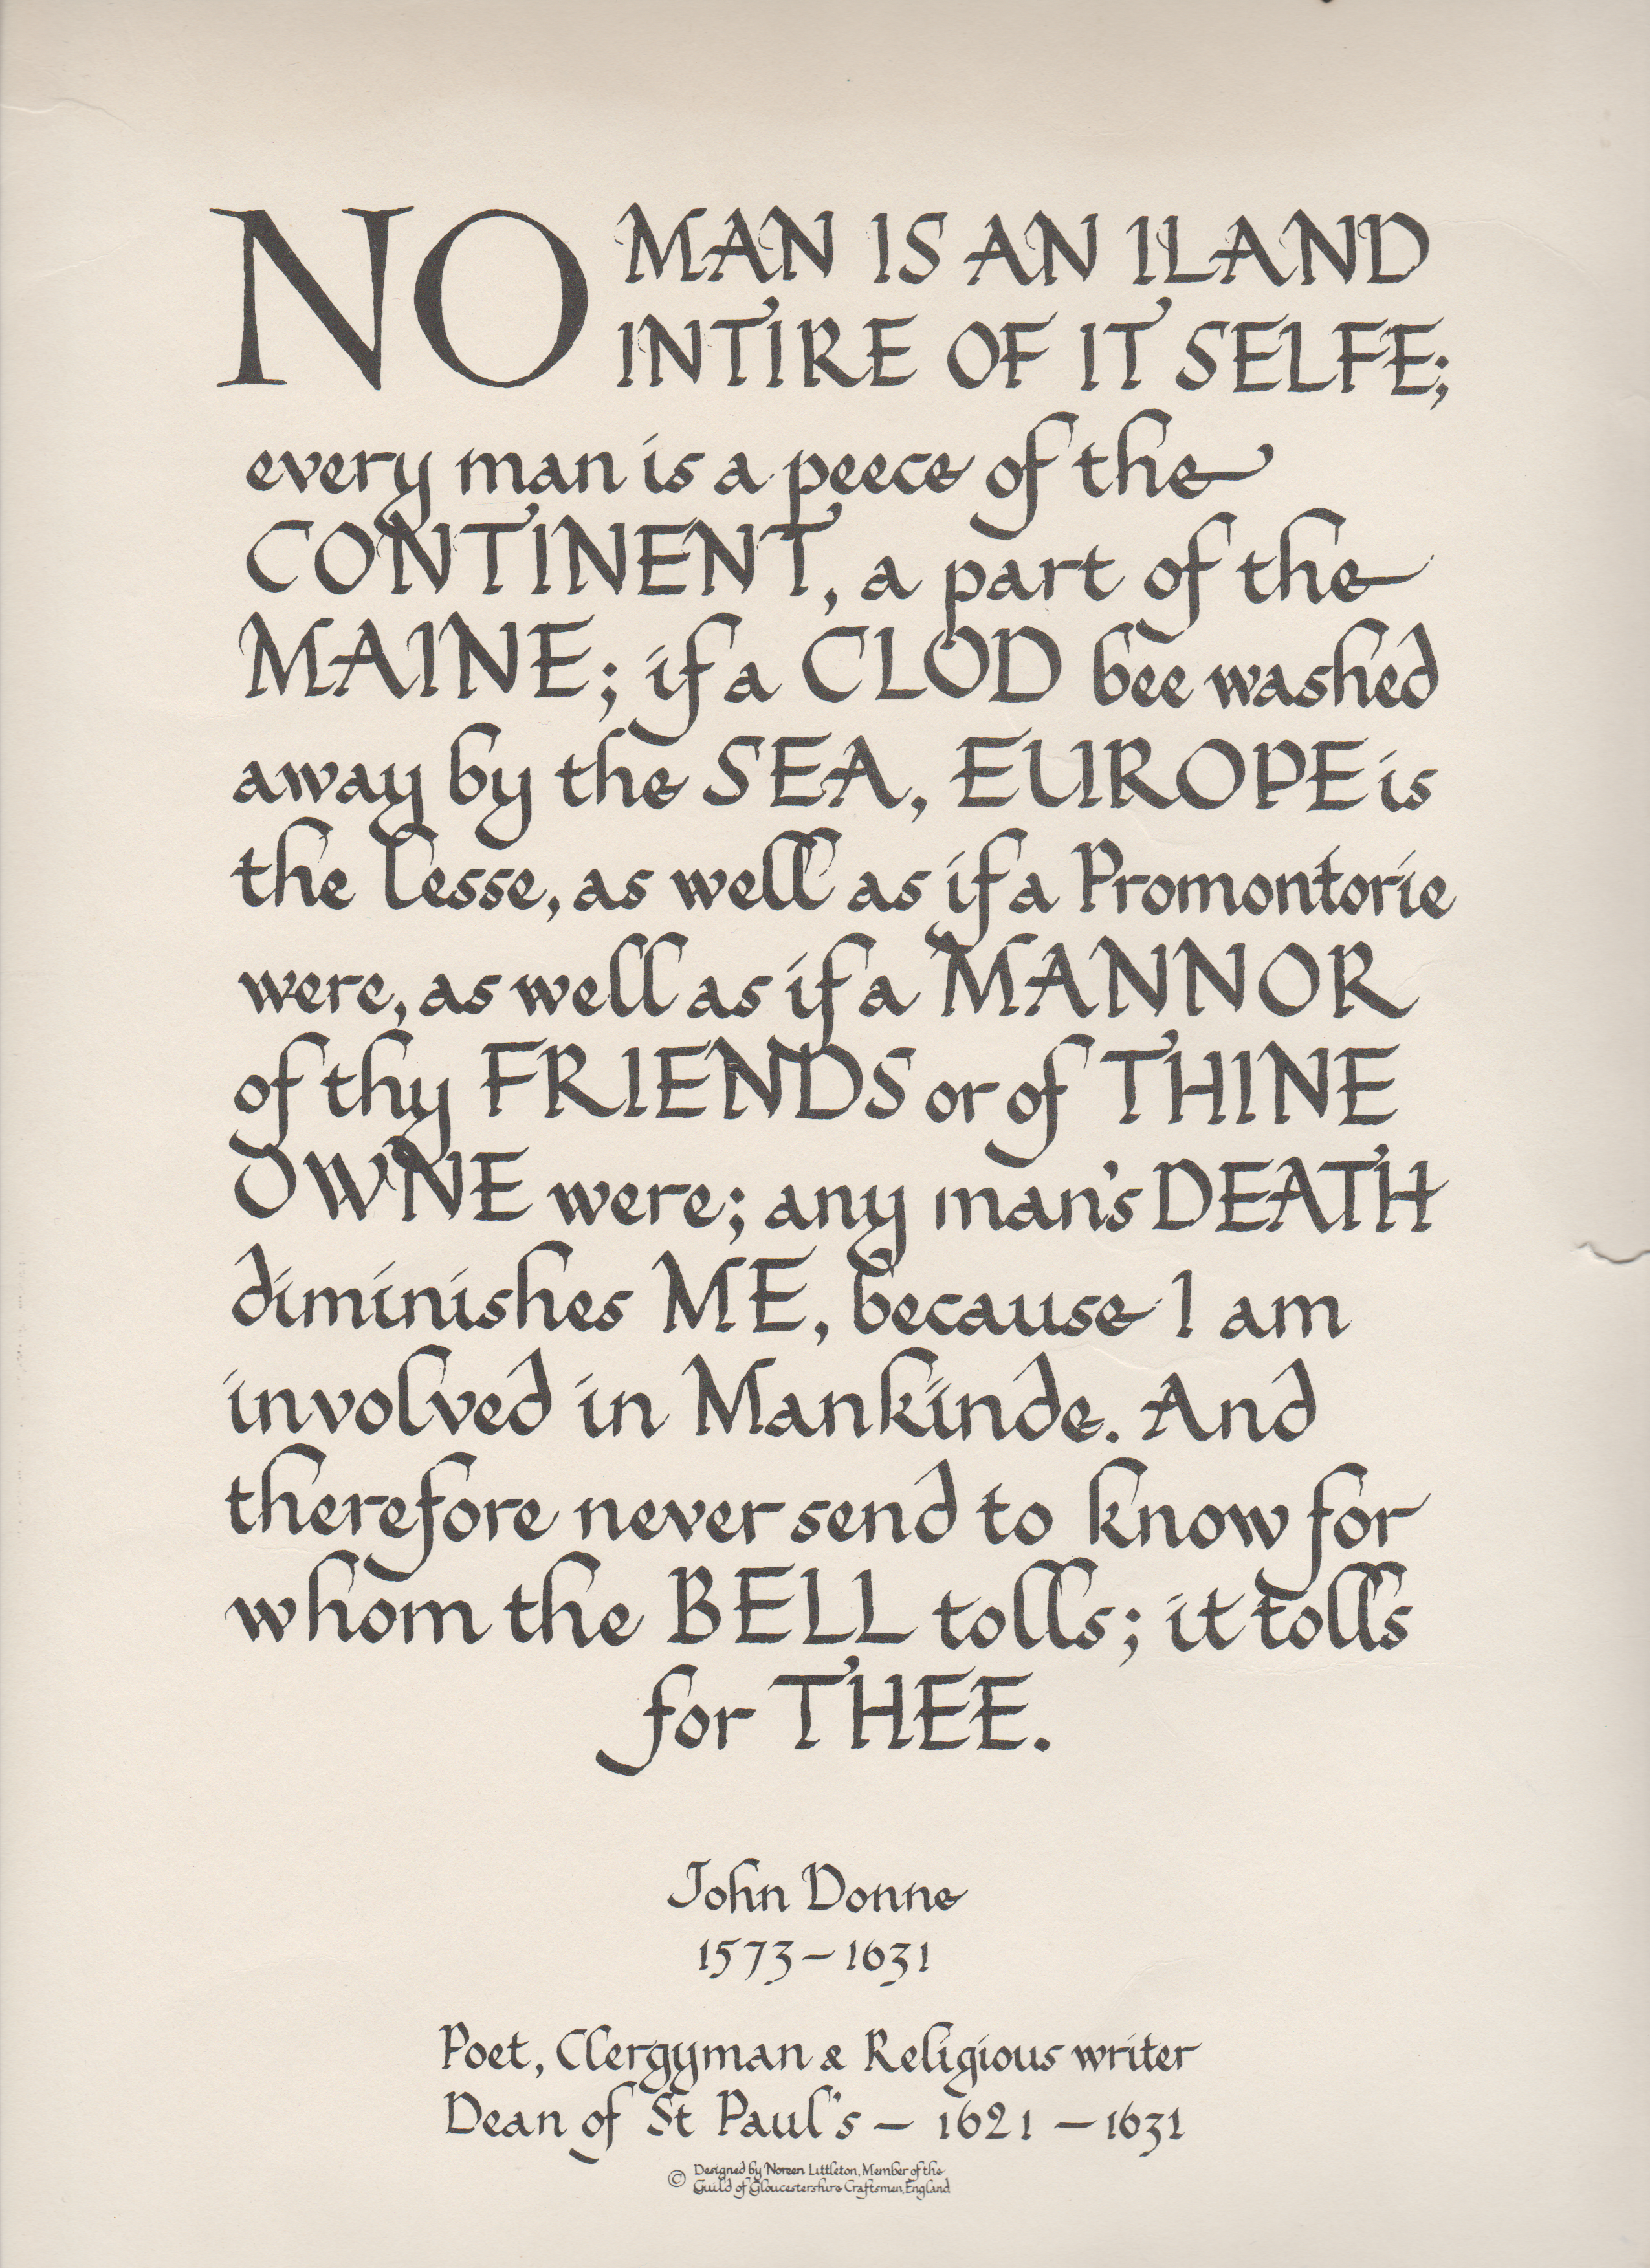 NO MAN IS AN ILAND
INTIRE OF IT SELFE;
every man is a peece of the
CONTINENT, a part of the
MAINE; if a CLOD bee washed
away by the SEA, EUROPE is
the lesse, as well as if a Promontorie
were, as well as if a MANNOR
of thy FRIENDS or of THINE
OWNE were; any man's DEATH
diminishes ME, because I am
involved in Mankinde. And
therefore never send to know for
whom the BELL tolls; it tolls
for THEE.
John Donne
1573-1631
Poet, Clergyman & Religious writer
Dean of St Paul's - 1621 - 1631
© Designed by Noreen Littleton, Member of the
Guild of Gloucestershire Craftsmen, England